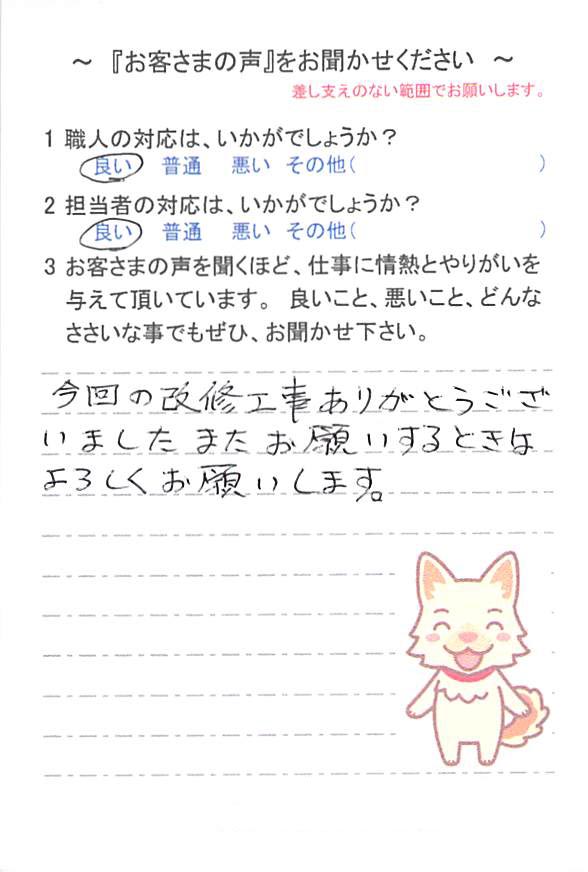 ～ 『お客さまの声』をお聞かせください ～
差し支えのない範囲でお願いします。
1 職人の対応は、いかがでしょうか？
良い 普通 悪い その他( )
2 担当者の対応は、いかがでしょうか？
良い 普通 悪い その他( )
3 お客さまの声を聞くほど、仕事に情熱とやりがいを
与えて頂いています。 良いこと、悪いこと、どんな
ささいな事でもぜひ、お聞かせ下さい。
今回の改修工事ありがとうござ
いました またお願いするときは
よろしくお願いします。